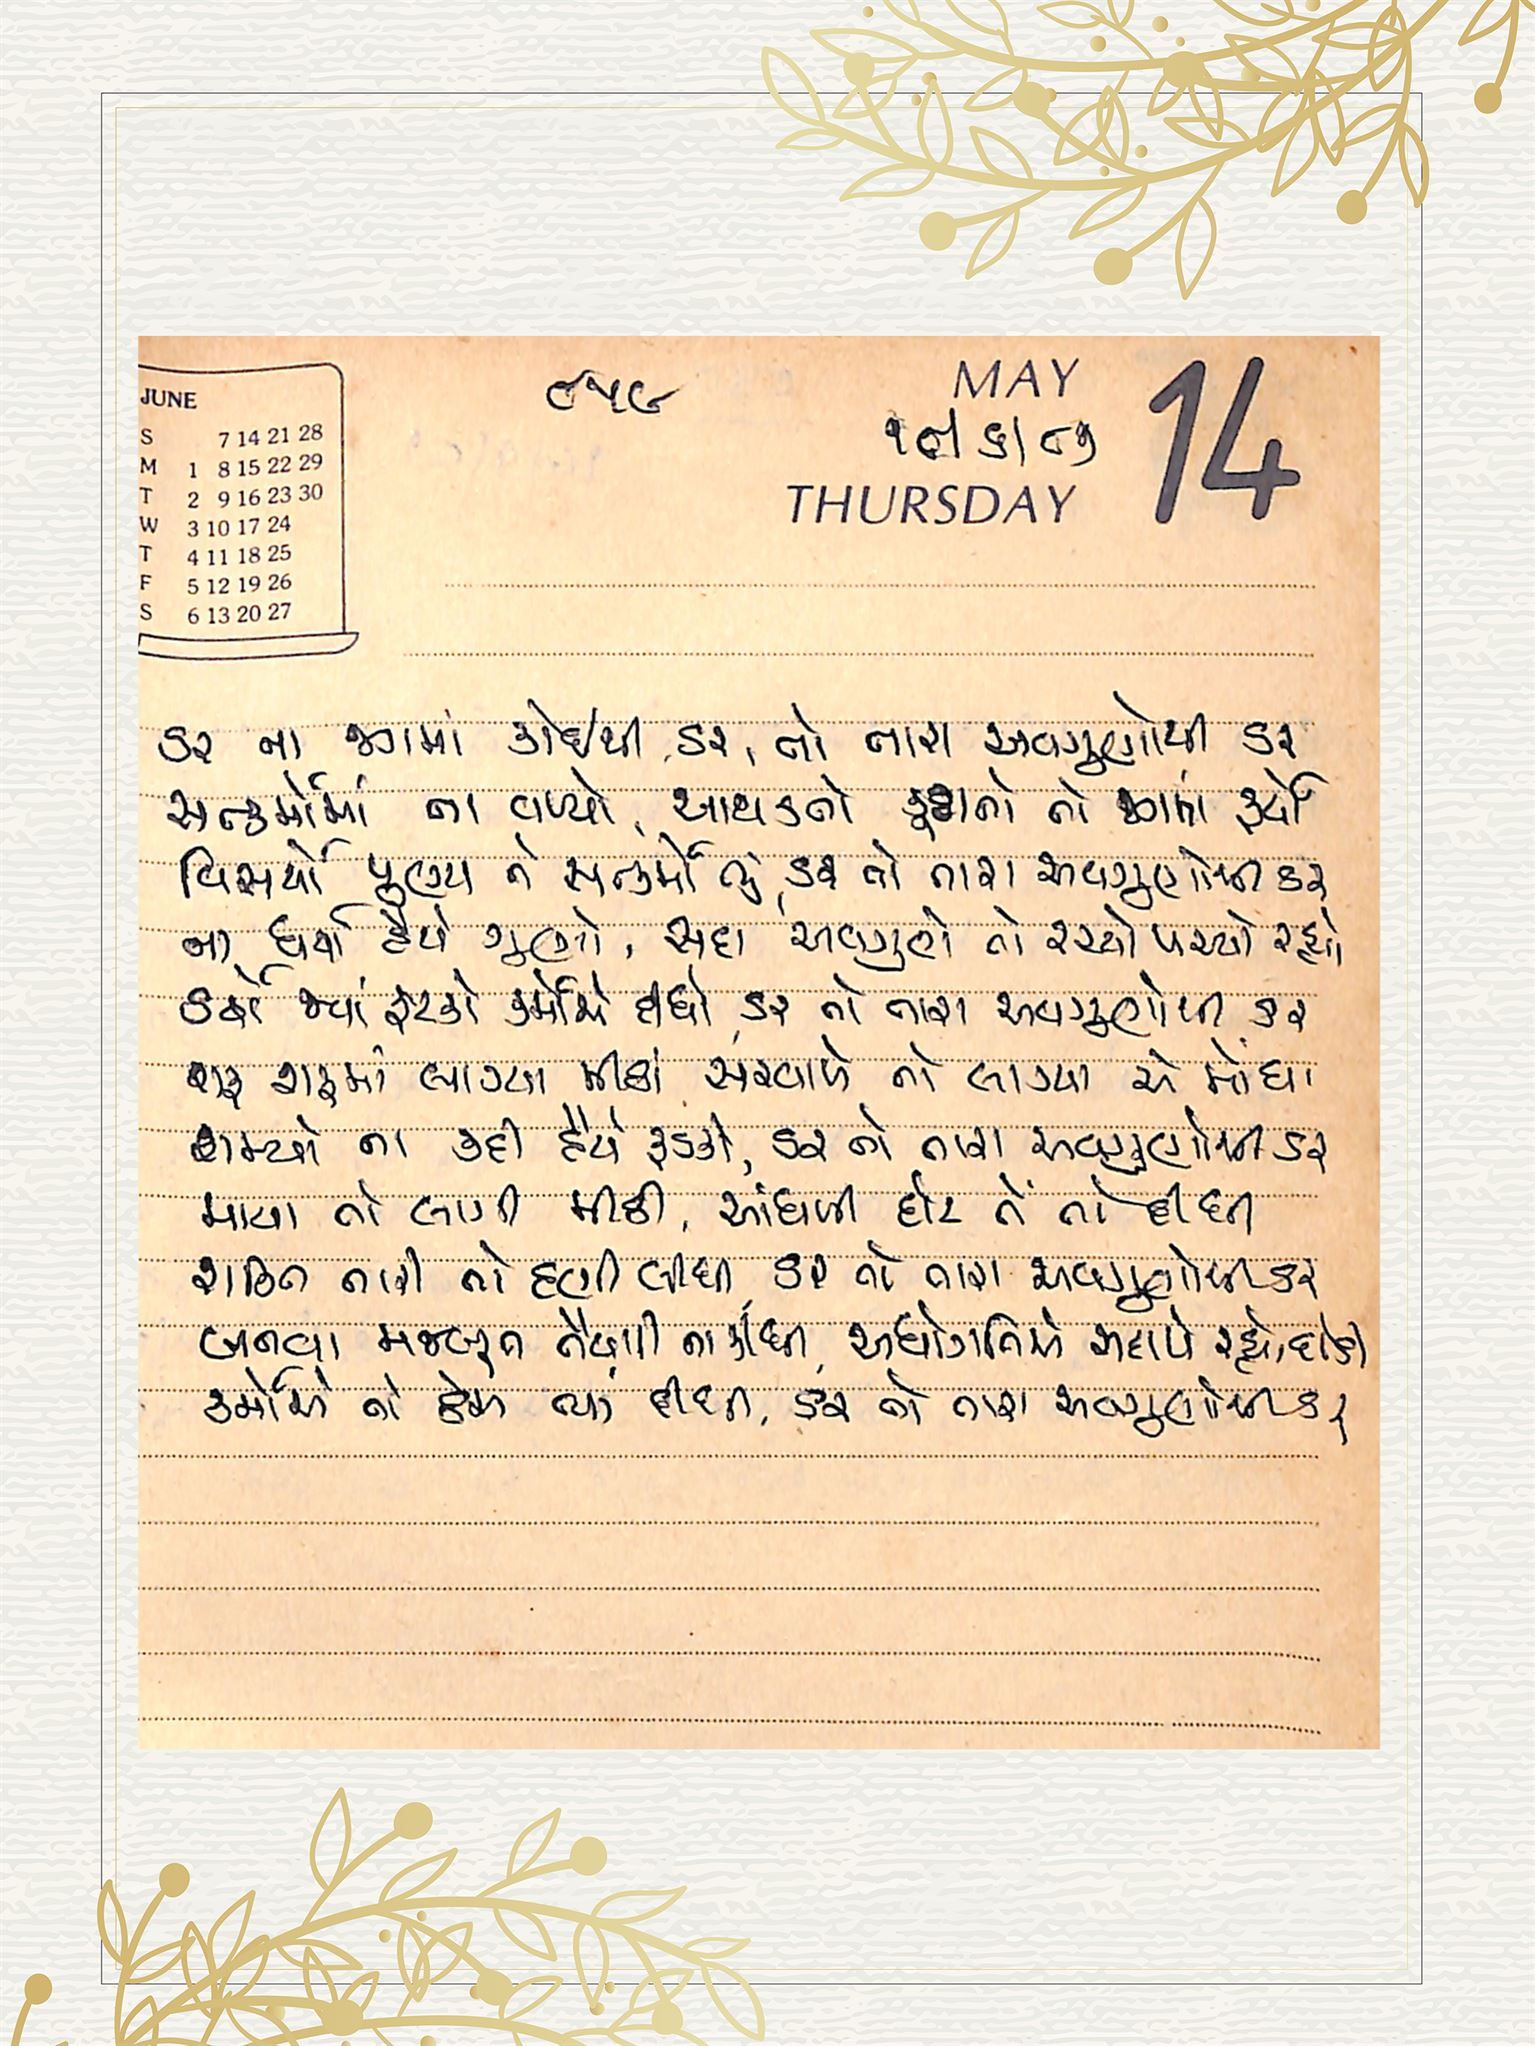 JUNE
S 7 14 21 28
M 1 8 15 22 29
T 2 9 16 23 30
W 3 10 17 24
T 4 11 18 25
F 5 12 19 26
S 6 13 20 27
MAY 14
THURSDAY
ડર ના જગમાં કોઈથી ડર, તો તારા અવગુણોથી ડર
સત્કર્મોમાં ના વળ્યો, આથડતો કૂટાતો તો જગમાં ફર્યો
વિસર્યો પુણ્ય ને સત્કર્મો તું, ડર તો તારા અવગુણોથી ડર
ના ધર્યા હૈયે ગુણો, સદા અવગુણે તો રચ્યો પચ્યો રહ્યો
ત્યાં ફટકો કર્મોએ દીધો, ડર તો તારા અવગુણોથી ડર
શરૂ શરૂમાં લાગ્યા મીઠાં સરવાળે તો લાગ્યા એ મોંઘા
શમ્યો ના કદી હૈયે ફડકો, ડર તો તારા અવગુણોથી ડર
માયા તો લાગી મીઠી, આંધળી દોટ તેં તો દીધી
શક્તિ તારી તો હણી લીધી, ડર તો તારા અવગુણોથી ડર
બનવા મજબૂત તૈયારી ના કીધી, અધોગતિએ સદાયે રહ્યો
કર્મોએ તો ત્યાં દીધી, ડર તો તારા અવગુણોથી ડર